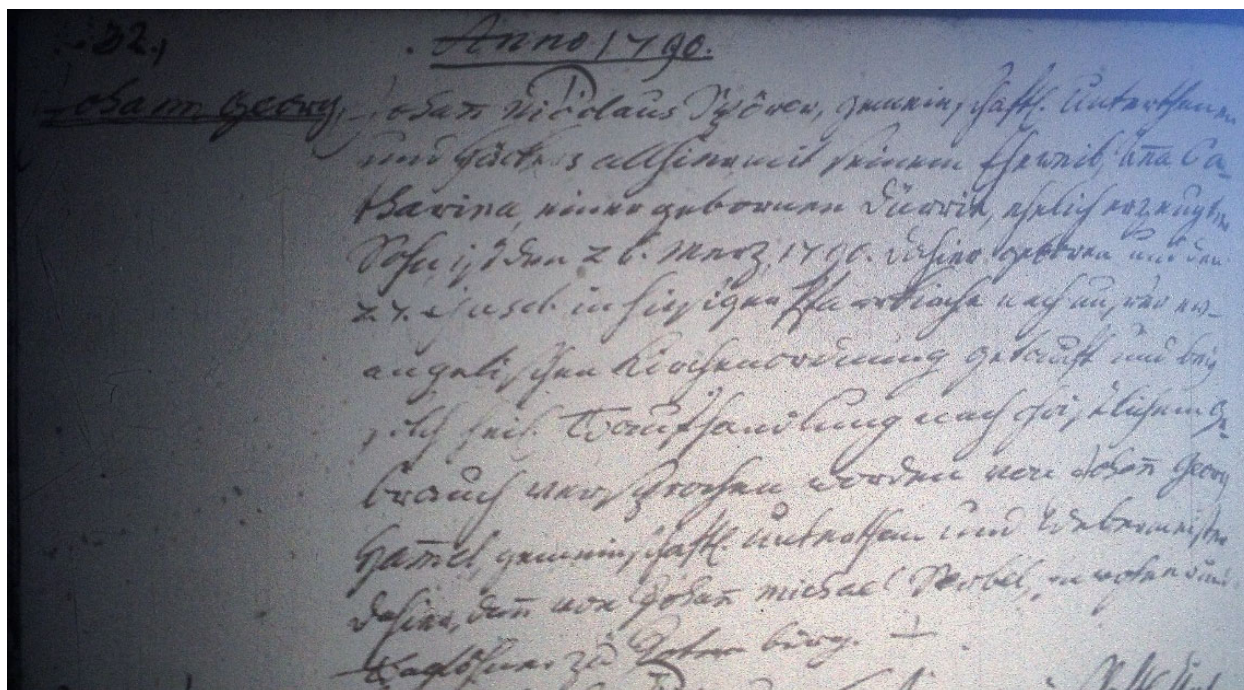 32.,
Anno 1790.
Johann Georg,
Johan̄ Nicolaus Spörer, gemeinschaftl. Unterthanen
und Häckers allhier mit seinem Eheweib, An̄a Ca-
tharina, einer gebornen Dürrin, ehelich erzeugter
Sohn ist den 26. Merz 1790. dahier geboren und den
27. ejusd. in hiesiger Pfarrkirche nach unserer ev-
angelischen Kirchenordnung getauft und bey
solch heil. Taufhandlung nach christlichem Ge-
brauch versprochen worden von Johan̄ Georg
Ham̄el, gemeinschaftl. Unterthan und Webermeister
dahier, dan̄ von Johan̄ Michael
Taglöhner zu